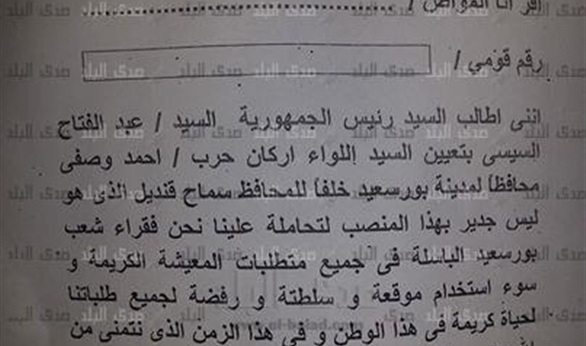 اقر انا المواطن / ........................................
رقم قومي /
اننى اطالب السيد رئيس الجمهورية السيد / عبد الفتاح
السيسى بتعيين السيد اللواء اركان حرب / احمد وصفى
محافظاً لمدينة بورسعيد خلفاً للمحافظ سماح قنديل الذى هو
ليس جدير بهذا المنصب لتحاملة علينا نحن فقراء شعب
بورسعيد الباسلة فى جميع متطلبات المعيشة الكريمة و
سوء استخدام موقعة و سلطتة و رفضة لجميع طلباتنا
لحياة كريمة فى هذا الوطن و فى هذا الزمن الذى نتمنى من
صدى البلد
el-balad.com